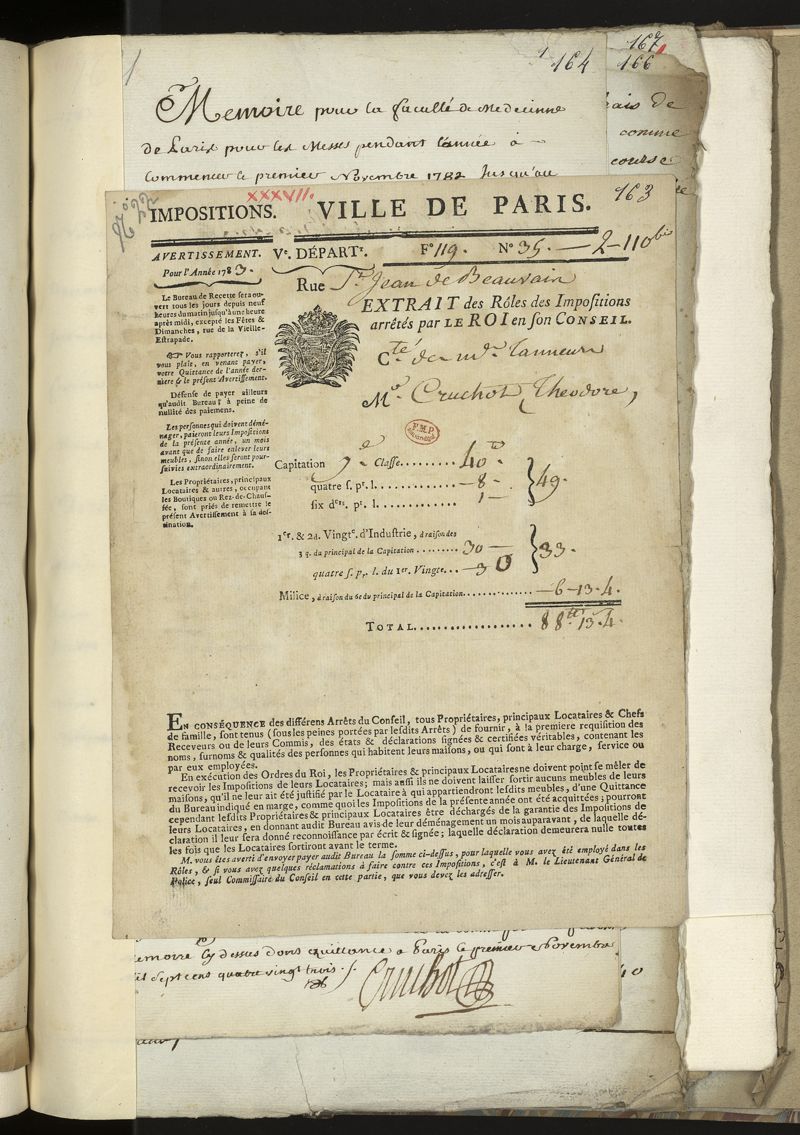 1
1
164
167
166
Memoire pour la faculté de Medecinne
de Paris pour les Messes pendant l'année à
commencer le premier Novembre 1782 Jusqu'au
ais de
comme
course
163
XXXVII.
IMPOSITIONS. VILLE DE PARIS.
AVERTISSEMENT.
Pour l'Année 1783.
Le Bureau de Recette sera ou-
vert tous les jours depuis neuf
heures du matin jusqu'à une heure
après midi, excepté les Fêtes &
Dimanches, rue de la Vieille-
Estrapade.
Vous rapporterez, s'il
vous plaît, en venant payer,
votre Quittance de l'année der-
niere & le présent Avertissement.
Défense de payer ailleurs
qu'audit Bureau, à peine de
nullité des paiemens.
Les personnes qui doivent démé-
nager, paieront leurs Impositions
de la présente année, un mois
avant que de faire enlever leurs
meubles, sinon elles seront pour-
suivies extraordinairement.
Les Propriétaires, principaux
Locataires & autres, occupant
les Boutiques ou Rez-de-Chaus-
sée, sont priés de remettre le
présent Avertissement à sa des-
tination.
Ve. DÉPARTt. Fº 119. Nº 35. — 2-110 bis
Rue St. Jean de Beauvais
EXTRAIT des Rôles des Impositions
arrêtés par LE ROI en son CONSEIL.
Cté de md. Tanneur
Mº. Cruchot Theodore,
Capitation 7e Classe......... 40tt
quatre s. pr. l. ............ — 8 -
six drs. pr. l. ............. 1 —
49.
1er. & 2d. Vingte. d'Industrie, à raison des
3 q. du principal de la Capitation ......... 30 —
quatre s. pr. l. du 1er. Vingte. .. — 3
33.
Milice, à raison du 6e du principal de la Capitation............... — 6-13.4.
TOTAL.................. 88tt 13.4.
EN CONSÉQUENCE des différens Arrêts du Conseil, tous Propriétaires, principaux Locataires & Chefs
de famille, sont tenus (sous les peines portées par lesdits Arrêts) de fournir, à la premiere requisition des
Receveurs ou de leurs Commis, des états & déclarations signées & certifiées véritables, contenant les
noms, surnoms & qualités des personnes qui habitent leurs maisons, ou qui sont à leur charge, service ou
par eux employées.
En exécution des Ordres du Roi, les Propriétaires & principaux Locataires ne doivent point se mêler de
recevoir les Impositions de leurs Locataires; mais aussi ils ne doivent laisser sortir aucuns meubles de leurs
maisons, qu'il ne leur ait été justifié par le Locataire à qui appartiendront lesdits meubles, d'une Quittance
du Bureau indiqué en marge, comme quoi les Impositions de la présente année ont été acquittées; pourront
cependant lesdits Propriétaires & principaux Locataires être déchargés de la garantie des Impositions de
leurs Locataires, en donnant audit Bureau avis de leur déménagement un mois auparavant, de laquelle dé-
claration il leur sera donné reconnoissance par écrit & signée; laquelle déclaration demeurera nulle toutes
les fois que les Locataires sortiront avant le terme.
M. vous êtes averti d'envoyer payer audit Bureau la somme ci-dessus, pour laquelle vous avez été employé dans les
Rôles, & si vous avez quelques réclamations à faire contre ces Impositions, c'est à M. le Lieutenant Général de
Police, seul Commissaire du Conseil en cette partie, que vous devez les adresser.
emoire cy dessus dont quittance a Paris le premier Novembre
il sept cens quatre vingt trois
Cruchot